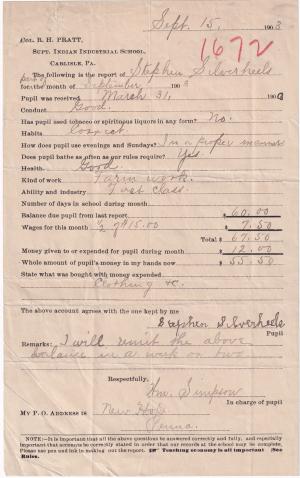 Sept. 15, 1903
1672
Col. R. H. PRATT,
SUPT. INDIAN INDUSTRIAL SCHOOL,
CARLISLE, PA.
The following is the report of Stephen Silverheels
part of
for the month of September 1903
Pupil was received March 31, 1903
Conduct Good.
Has pupil used tobacco or spirituous liquors in any form? No.
Habits Correct.
How does pupil use evenings and Sundays? In a proper manner
Does pupil bathe as often as our rules require? Yes.
Health Good.
Kind of work Farm work.
Ability and industry First class.
Number of days in school during month
Balance due pupil from last report $ 60.00
Wages for this month 1/2 of $15.00 $ 7.50
Total $ 67.50
Money given to or expended for pupil during month $ 12.00
Whole amount of pupil's money in my hands now $ 55.50
State what was bought with money expended
Clothing &c.
The above account agrees with the one kept by me
Stephen Silverheels
Pupil
Remarks: I will remit the above
balance in a week or two
Respectfully,
Wm. Simpson
In charge of pupil
MY P. O. ADDRESS IS New Hope
Penna.
NOTE:—It is important that all the above questions be answered correctly and fully, and especially
important that accounts be correctly stated in order that our records at the school may be complete.
Please use pen and ink in making out the report. Teaching economy is all important (See
Rules.